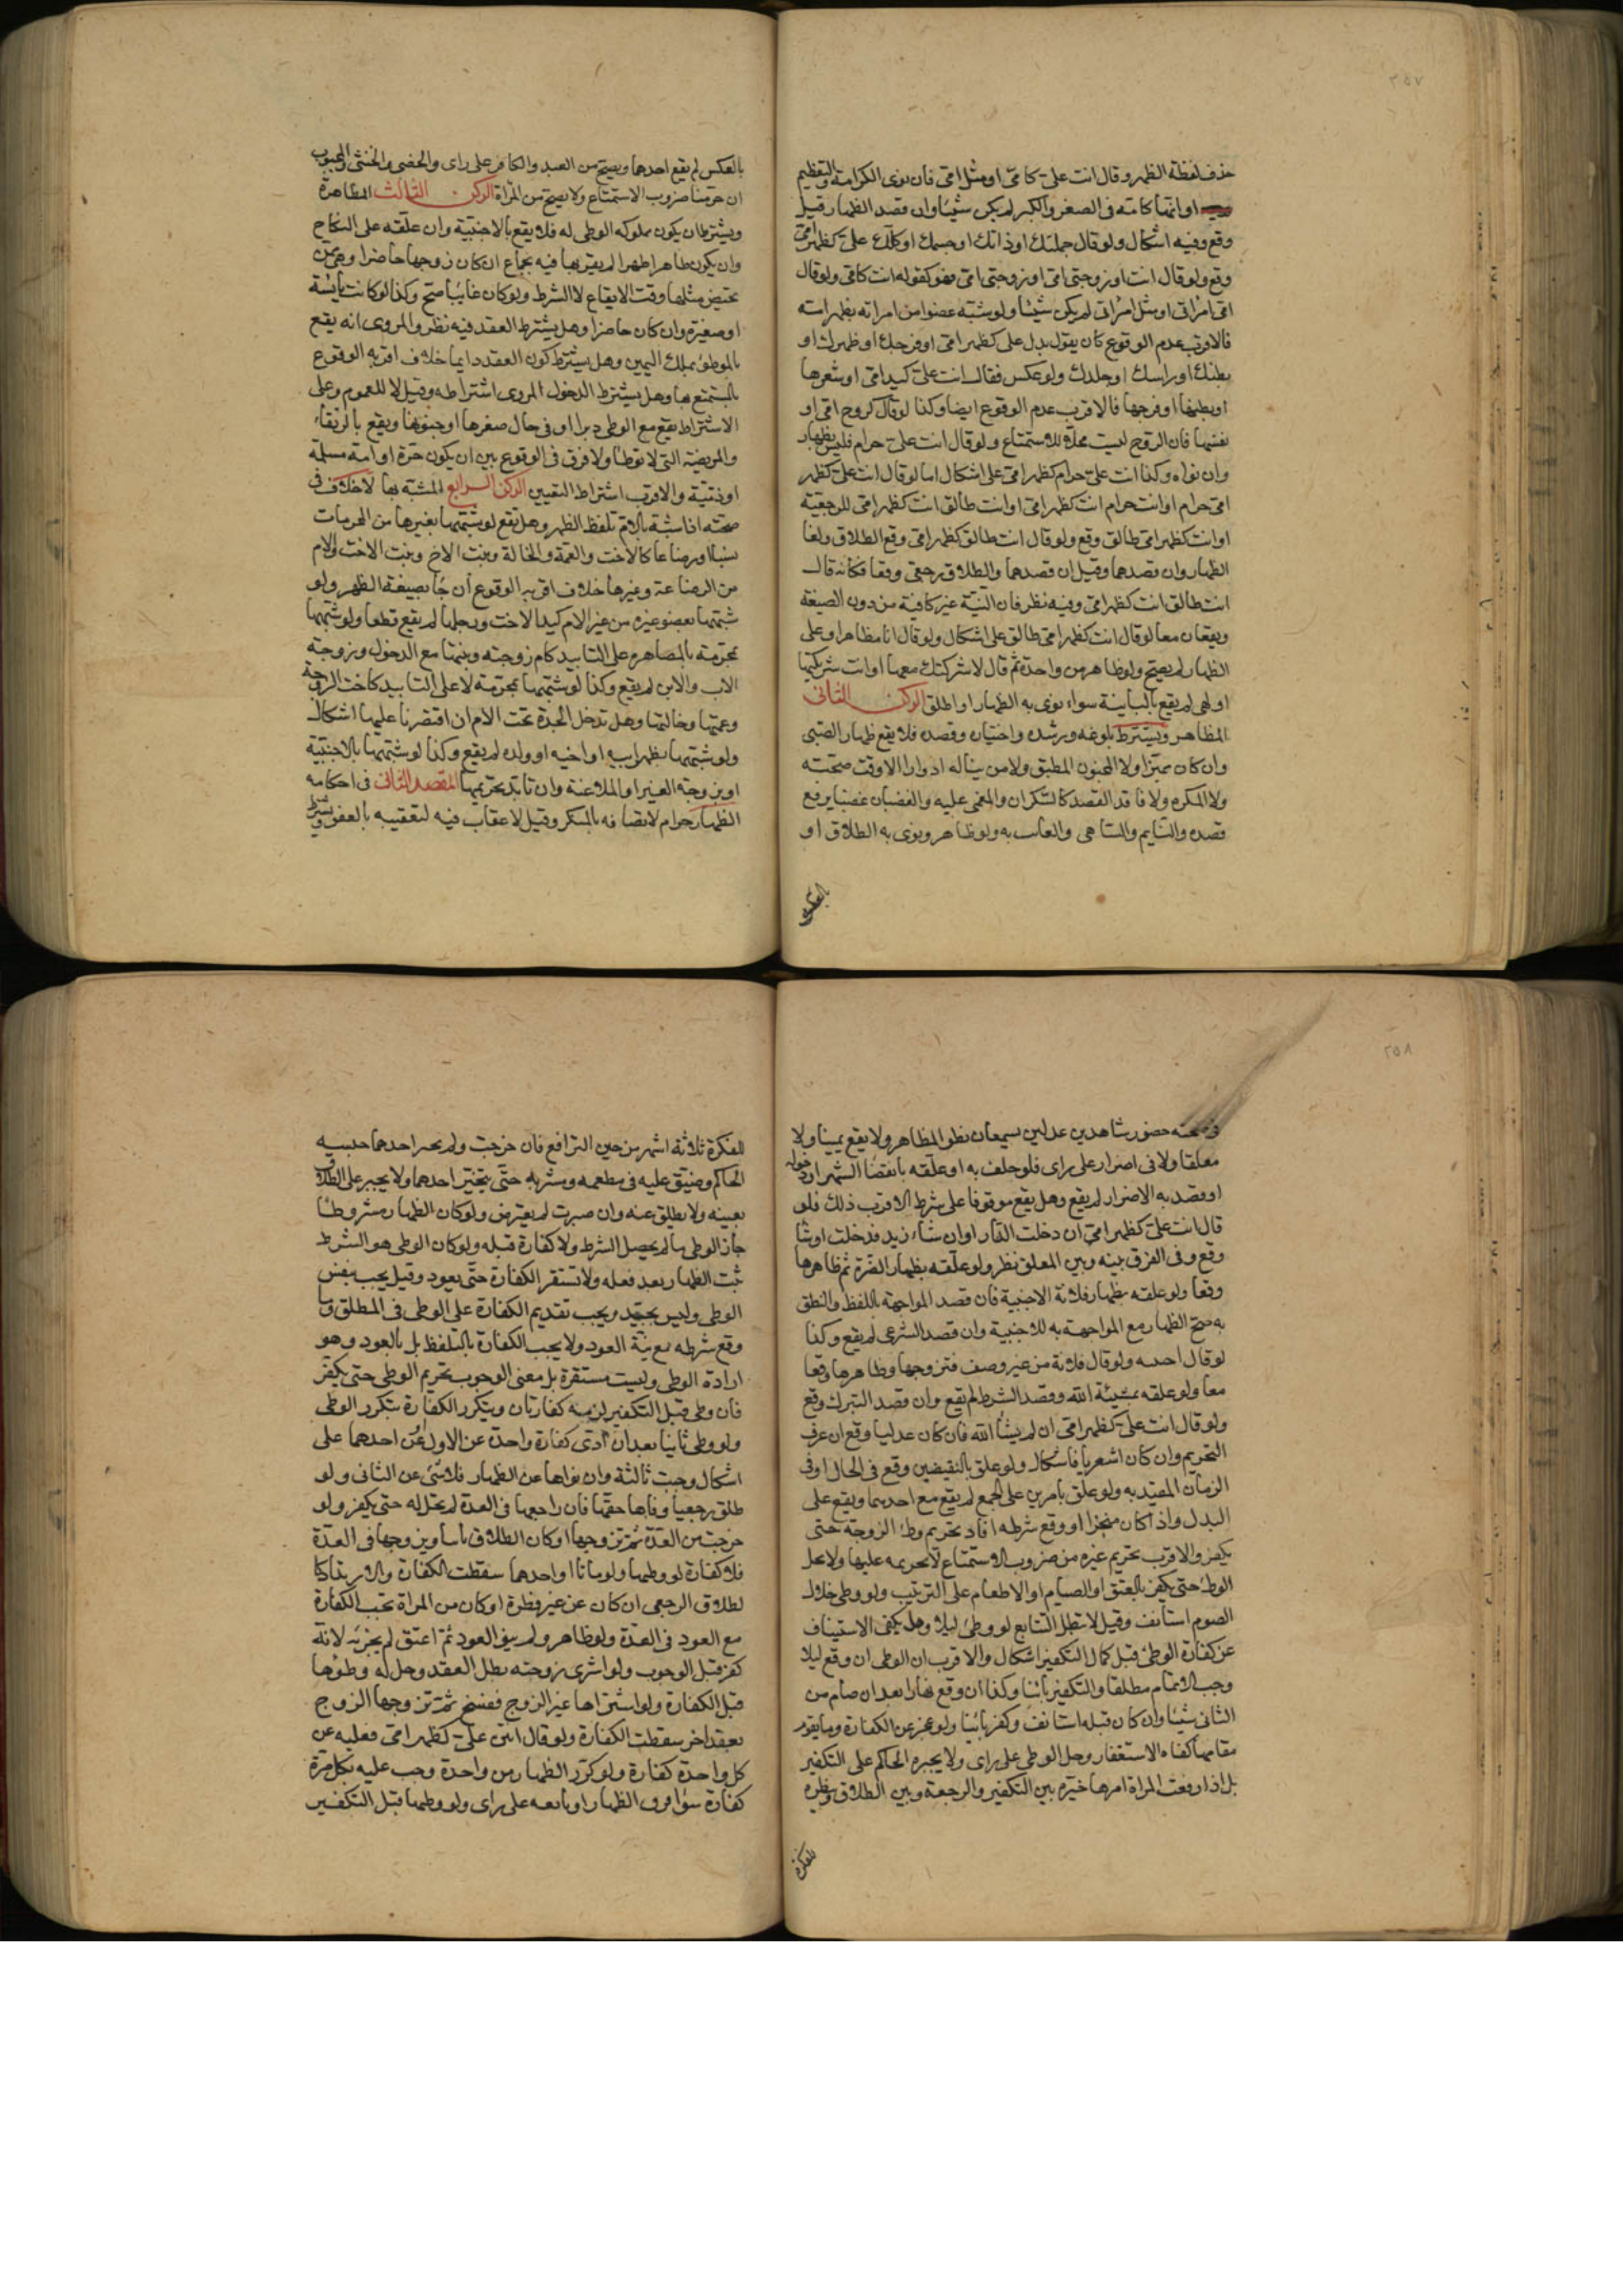 ٢٥٧
حذف لفظة الظهر وقال انت علىّ كامّى او مثل امّى فان نوى الكرامة والتعظيم
او انها كامته فى الصغر والكبر لم يكن شيئا وان قصد الظهار قيل
وقع وفيه اشكال ولو قال جملتك او ذاتك او جسمك او كلّك علىّ كظهر امّى
وقع ولو قال انت او زوجتى امّى او زوجتى امّى فهو كقوله انت كامّى ولو قال
امّى امراتى او مثل امراتى لم يكن شيئا ولو شبّه عضوا من امراته بظهر امته
فالاقرب عدم الوقوع كان يقول يدك على كظهر امّى او فرجك او ظهرك او
بطنك او راسك او جلدك ولو عكس فقال انت علىّ كيد امّى او شعرها
او بطنها او فرجها فالاقرب عدم الوقوع ايضا وكذا لو قال كروح امّى او
نفسها فان الروح ليست محلّا للاستمتاع ولو قال انت علىّ حرام فليس بظهار
وان نواه وكذا انت علىّ حرام كظهر امّى على اشكال اما لو قال انت علىّ كظهر
امّى حرام او انت حرام انت كظهر امّى او انت طالق انت كظهر امّى للرجعيّة
او انت كظهر امّى طالق وقع ولو قال انت طالق كظهر امّى وقع الطلاق ولغا
الظهار وان قصدهما وقيل ان قصدهما والطلاق رجعى وقعا فكانه قال
انت طالق انت كظهر امّى وفيه نظر فان النيّة غير كافية من دون الصيغة
ويقعان معا لو قال انت كظهر امّى طالق على اشكال ولو قال انا مظاهر او على
الظهار لم يصح ولو ظاهر من واحدة ثم قال لاخرى شركتك معها او انت شريكتها
او لهى لم يقع بالثانية سواء نوى به الظهار او اطلق الركن الثانى
المظاهر ويشترط بلوغه ورشده واختياره وقصده فلا يقع ظهار الصبى
وان كان مميّزا ولا المجنون المطبق ولا من يناله ادوارا الا وقت صحّته
ولا المكره ولا فاقد القصد كالسّكران والمغمى عليه والغضبان غضبا يرفع
قصده والنايم والساهى والعابث به ولو ظاهر ونوى به الطلاق او
بالعكس
بالعكس لم يقع احدهما ويصحّ من العبد والكافر على راى والخصى والخنثى والمجبوب
ان حرّمنا ضروب الاستمتاع ولا يصحّ من المرأة الركن الثالث المظاهرة
ويشترط ان يكون مملوكه الوطى له فلا يقع بالاجنبيّة وان علّقه على النكاح
وان يكون طاهرا طهرا لم يقربها فيه بجماع ان كان زوجها حاضرا وهى ممن
تحيض مثلها وقت الايقاع لا الشرط ولو كان غايبا صحّ وكذا لو كانت يائسة
او صغيرة وان كان حاضرا وهل يشترط العقد فيه نظر والمروى انه يقع
بالموطؤة بملك اليمين وهل يشترط كون العقد دايما خلاف اقربه الوقوع
بالمستمتع بها وهل يشترط الدخول المروى اشتراطه وقيل لا للعموم وعلى
الاشتراط يقع مع الوطى دبرا او فى حال صغرها او جنونها ويقع بالرتقاء
والمريضة التى لا توطا ولا فرق فى الوقوع بين ان يكون حرّة او امة مسلمة
او ذمّيّة والاقرب اشتراط التعيين الركن الرابع المشبّه بها لا خلاف فى
صحّته اذا شبّه بالام تلفظ الظهر وهل تقع لو شبّهها بغيرها من المحرمات
نسبا او رضاعا كالاخت والعمة والخالة وبنت الاخ وبنت الاخت والام
من الرضاعة وغيرها خلاف اقربه الوقوع ان جا بصيغة الظهر ولو
شبّهها بعضو غيره من غير الام كيد الاخت ورجلها لم يقع قطعا ولو شبّهها
بمحرّمة بالمصاهرة على التابيد كام زوجته وبنتها مع الدخول وزوجة
الاب والابن لم يقع وكذا لو شبّهها بمحرّمة لا على التابيد كاخت الزوجة
وعمتها وخالتها وهل تدخل الجدة تحت الام ان اقتصرنا عليها اشكال
ولو شبّهها بظهر ابيه او اخيه او ولده لم يقع وكذا لو شبّهها بالاجنبيّة
او بزوجة الغير او الملاعنة وان تابّد تحريمها المقصد الثانى فى احكامه
الظهار حرام لاتصافه بالمنكر وقيل لا عقاب فيه لتعقيبه بالعفو ويشترط
٢٥٨
فى صحّته حضور شاهدين عدلين يسمعان نطق المظاهر ولا يقع يمينا ولا
معلقا ولا فى اضرار على راى فلو حلف به او علّقه بانقضا الشهر او دخوله
او قصد به الاضرار لم يقع وهل يقع موقوفا على شرط الاقرب ذلك فلو
قال انت علىّ كظهر امّى ان دخلت الدار او ان شاء زيد فدخلت او شا
وقع وفى الفرق بينه وبين المعلق نظر ولو علّقه بظهار الضرّة ثم ظاهرها
وقعا ولو علقه بظهار فلانة الاجنبية فان قصد المواجهة باللفظ والنطق
به صحّ الظهار مع المواجهة به للاجنبية وان قصد الشرعى لم يقع وكذا
لو قال اجنبية ولو قال فلانة من غير وصف فتزوجها وظاهرها وقعا
معا ولو علقه بمشيئة الله وقصد الشرط لم يقع وان قصد التبرك وقع
ولو قال انت علىّ كظهر امّى ان لم يشا الله فان كان عدليا وقع ان عرف
التحريم وان كان اشعريا فاشكال ولو علق بالنقيضين وقع فى الحال او فى
الزمان المقيّد به ولو علّق بامرين على الجمع لم يقع مع احدهما ويقع على
البدل واذا كان منجزا او وقع شرطه افاد تحريم وطئ الزوجة حتى
يكفر والاقرب تحريم غيره من ضروب الاستمتاع لا تحريمه عليها ولا يحل
الوطئ حتى يكفر بالعتق او الصيام او الاطعام على الترتيب ولو وطى خلال
الصوم استانف وقيل لا تبطل التتابع لو وطئ ليلا وهل يكفى الاستيناف
عن كفارة الوطئ قبل كمال التكفير اشكال والاقرب ان الوطى ان وقع ليلا
وجب الاتمام مطلقا والتكفير ثانيا وكذا ان وقع نهارا بعد ان صام من
الثانى شيئا وان كان قبله استانف وكفر ثانيا ولو عجز عن الكفارة وما يقوم
مقامها كفاه الاستغفار وحل الوطى على راى ولا يجبره الحاكم على التكفير
بل اذا رفعت المراة امرها خيّره بين التكفير والرجعة وبين الطلاق وينظره
للفكرة
للفكرة ثلاثة اشهر من حين الترافع فان خرجت ولم يختر احدهما حبسه
الحاكم وضيّق عليه فى مطعمه ومشربه حتّى يتخيّر احدهما ولا يجبر على الطلاق
بعينه ولا يطلق عنه وان صبرت لم يعترض ولو كان الظهار مشروطا
جاز الوطى ما لم يحصل الشرط ولا كفارة قبله ولو كان الوطى هو الشرط
ثبت الظهار بعد فعله ولا تستقر الكفارة حتّى يعود وقيل يجب بنفس
الوطى وليس بجيّد ويجب تقديم الكفارة على الوطى فى المطلق وما
وقع شرطه مع نيّة العود ولا يجب الكفارة بالتلفظ بل بالعود وهو
ارادة الوطى وليست مستقرة بل معنى الوجوب تحريم الوطى حتى يكفّر
فان وطى قبل التكفير لزمه كفارتان ويتكرر الكفارة بتكرر الوطى
ولو وطى ثانيا بعد ان ادّى كفارة واحدة عن الاول او عن احدهما على
اشكال وجبت ثالثة وان نواها عن الظهار فلا شى عن الثانى ولو
طلق رجعيا وفاها حقّها فان راجعها فى العدة لم تحل له حتى يكفر ولو
خرجت من العدّة ثم تزوجها او كان الطلاق باينا وتزوجها فى العدّة
فلا كفارة لو وطيها ولو ماتا او احدهما سقطت الكفارة والارتداد كا
لطلاق الرجعى ان كان عن غير فطرة او كان من المراة تجب الكفارة
مع العود فى العدّة ولو ظاهر ولم ينو العود ثم اعتق لم يجزئه لانّه
كفّر قبل الوجوب ولو اشترى زوجته بطل العقد وحل له وطؤها
قبل الكفارة ولو اشتراها غير الزوج ففسخ ثم تزوجها الزوج
بعقد اخر سقطت الكفارة ولو قال انتن علىّ كظهر امّى فعليه عن
كل واحدة كفارة ولو كرّر الظهار من واحدة وجب عليه بكل مرّة
كفارة سوا فرق الظهار او تابعه على راى ولو وطيها قبل التكفير